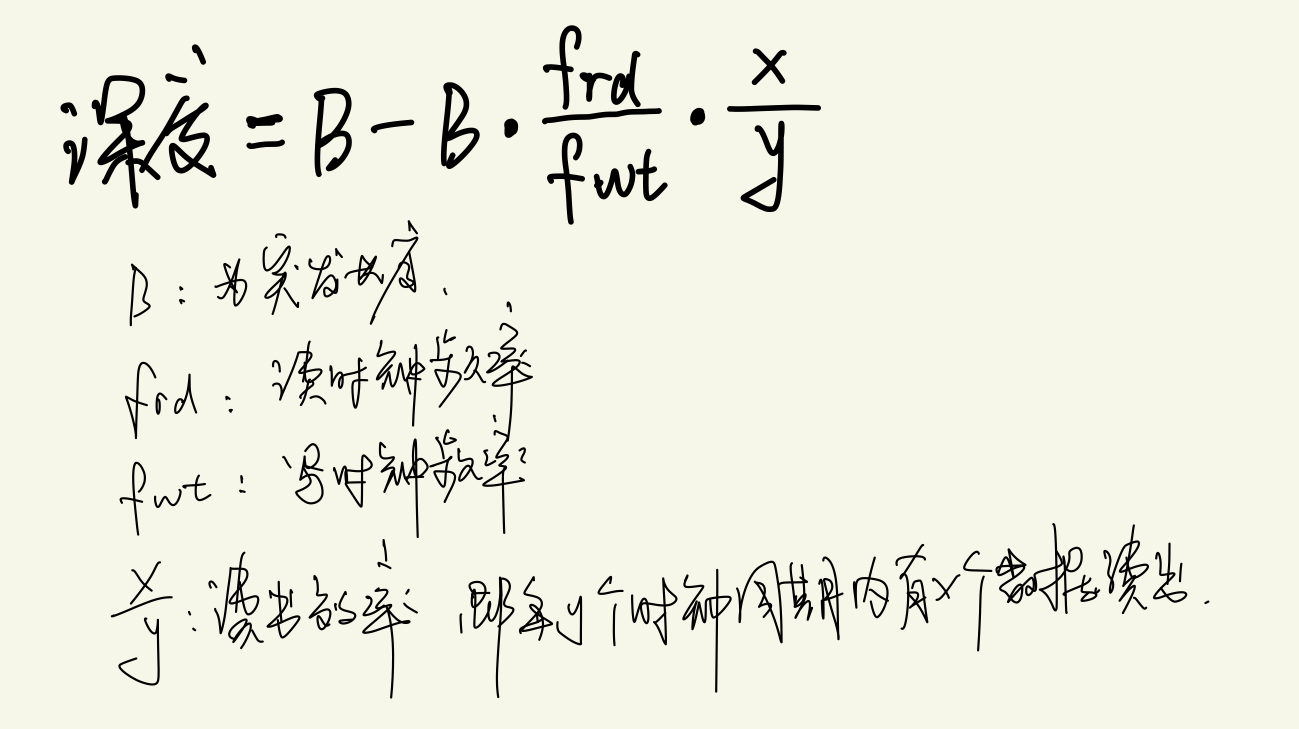 深度 = B - B · frd/fwt · x/y
B : 为突发长度.
frd : 读时钟频率
fwt : 写时钟频率
x/y : 读出效率, 即每y个时钟周期内有x个数据读出.